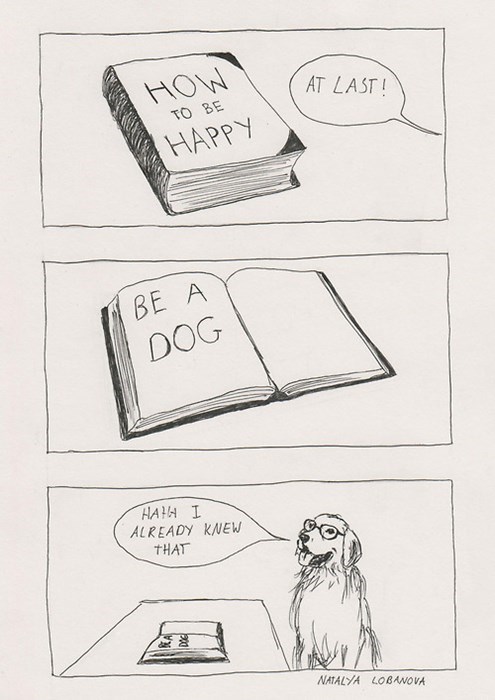 HOW
TO BE
HAPPY
AT LAST!
BE A
DOG
HAHA I
ALREADY KNEW
THAT
BE A
DOG
NATALYA LOBANOVA